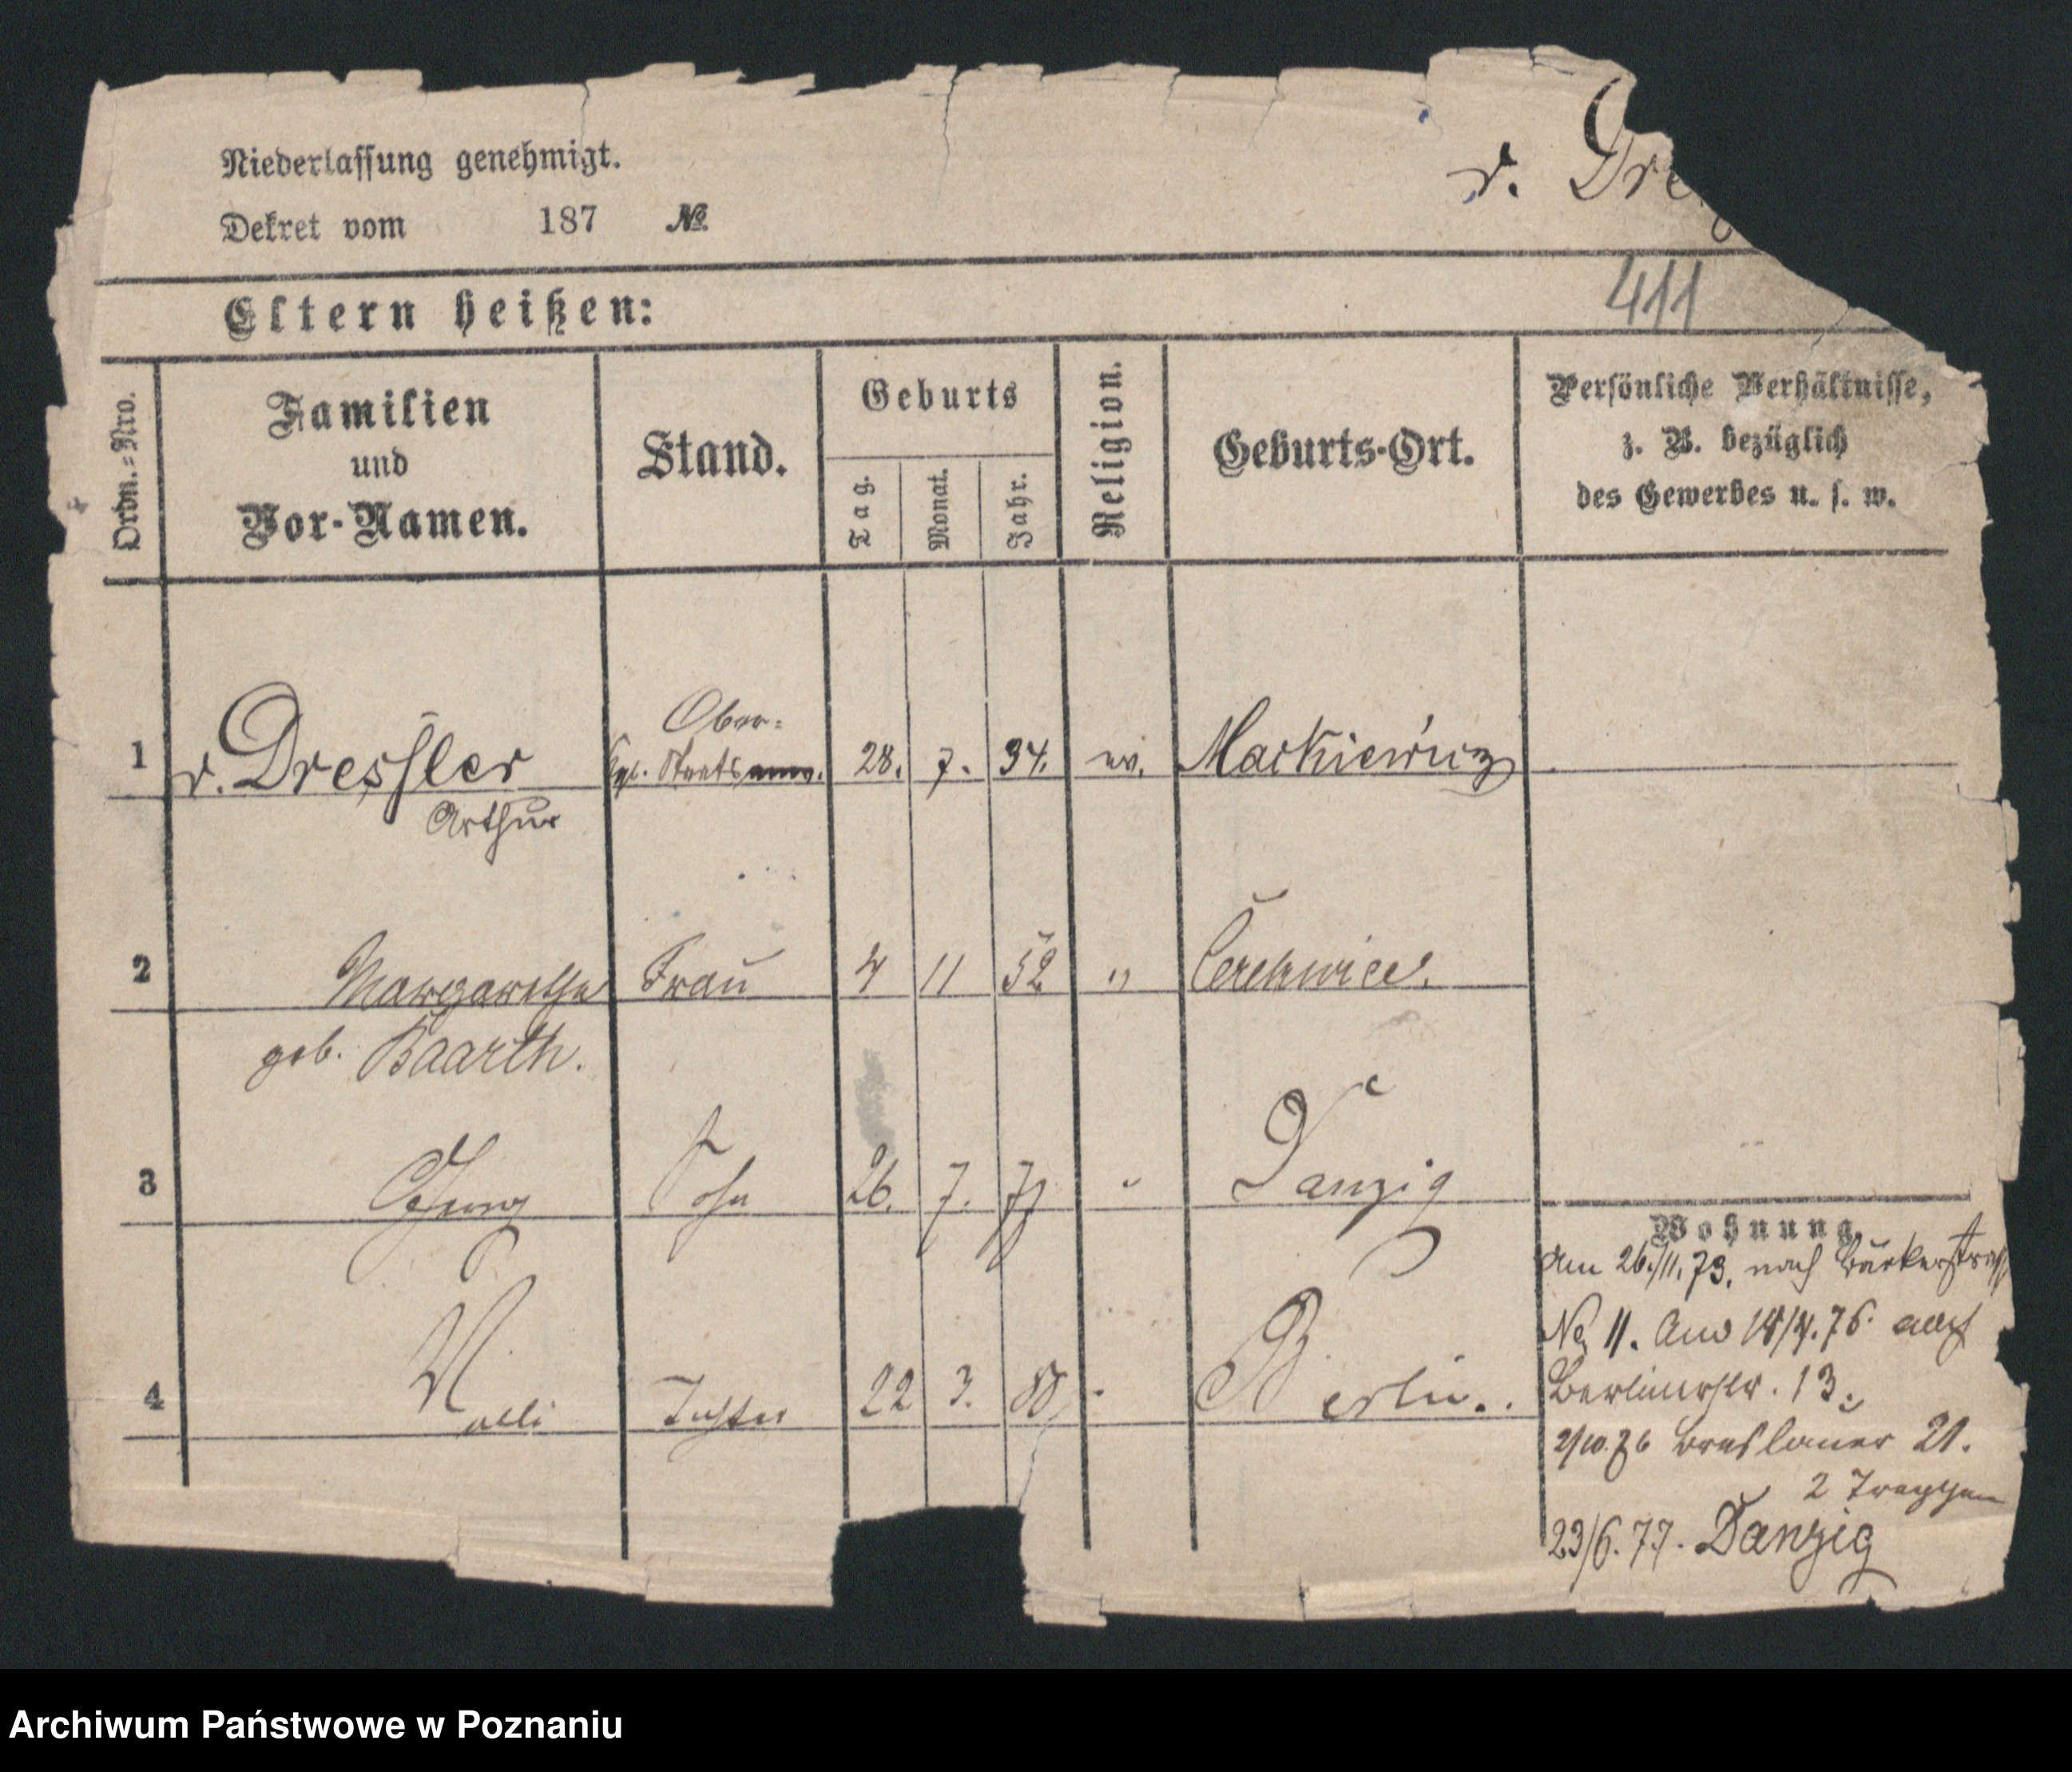 Niederlassung genehmigt.
Dekret vom 187 №
v. Dre
411
Eltern heißen:
Ordn.=Nro.
Familien und Vor-Namen.
Stand.
Geburts
Tag.
Monat.
Jahr.
Religion.
Geburts-Ort.
Persönliche Verhältnisse,
z. B. bezüglich
des Gewerbes u. s. w.
Ober-
1 v. Dressler Kgl. Staatsanw. 28. 7. 34. ev. Markiewicz
Arthur
2 Margarethe Frau 4 11 52 " 
geb. Baarth.
3 Georg Sohn 26. 7. " Danzig
4 Tochter 22 3. Berlin.
Wohnung.
Am 26./11.73. nach Bäckerstraß
No 11. 76. auf
Berlinerstr. 13.
2/10.76 Breslauer 21.
2 Treppen
23/6.77. Danzig
Archiwum Państwowe w Poznaniu